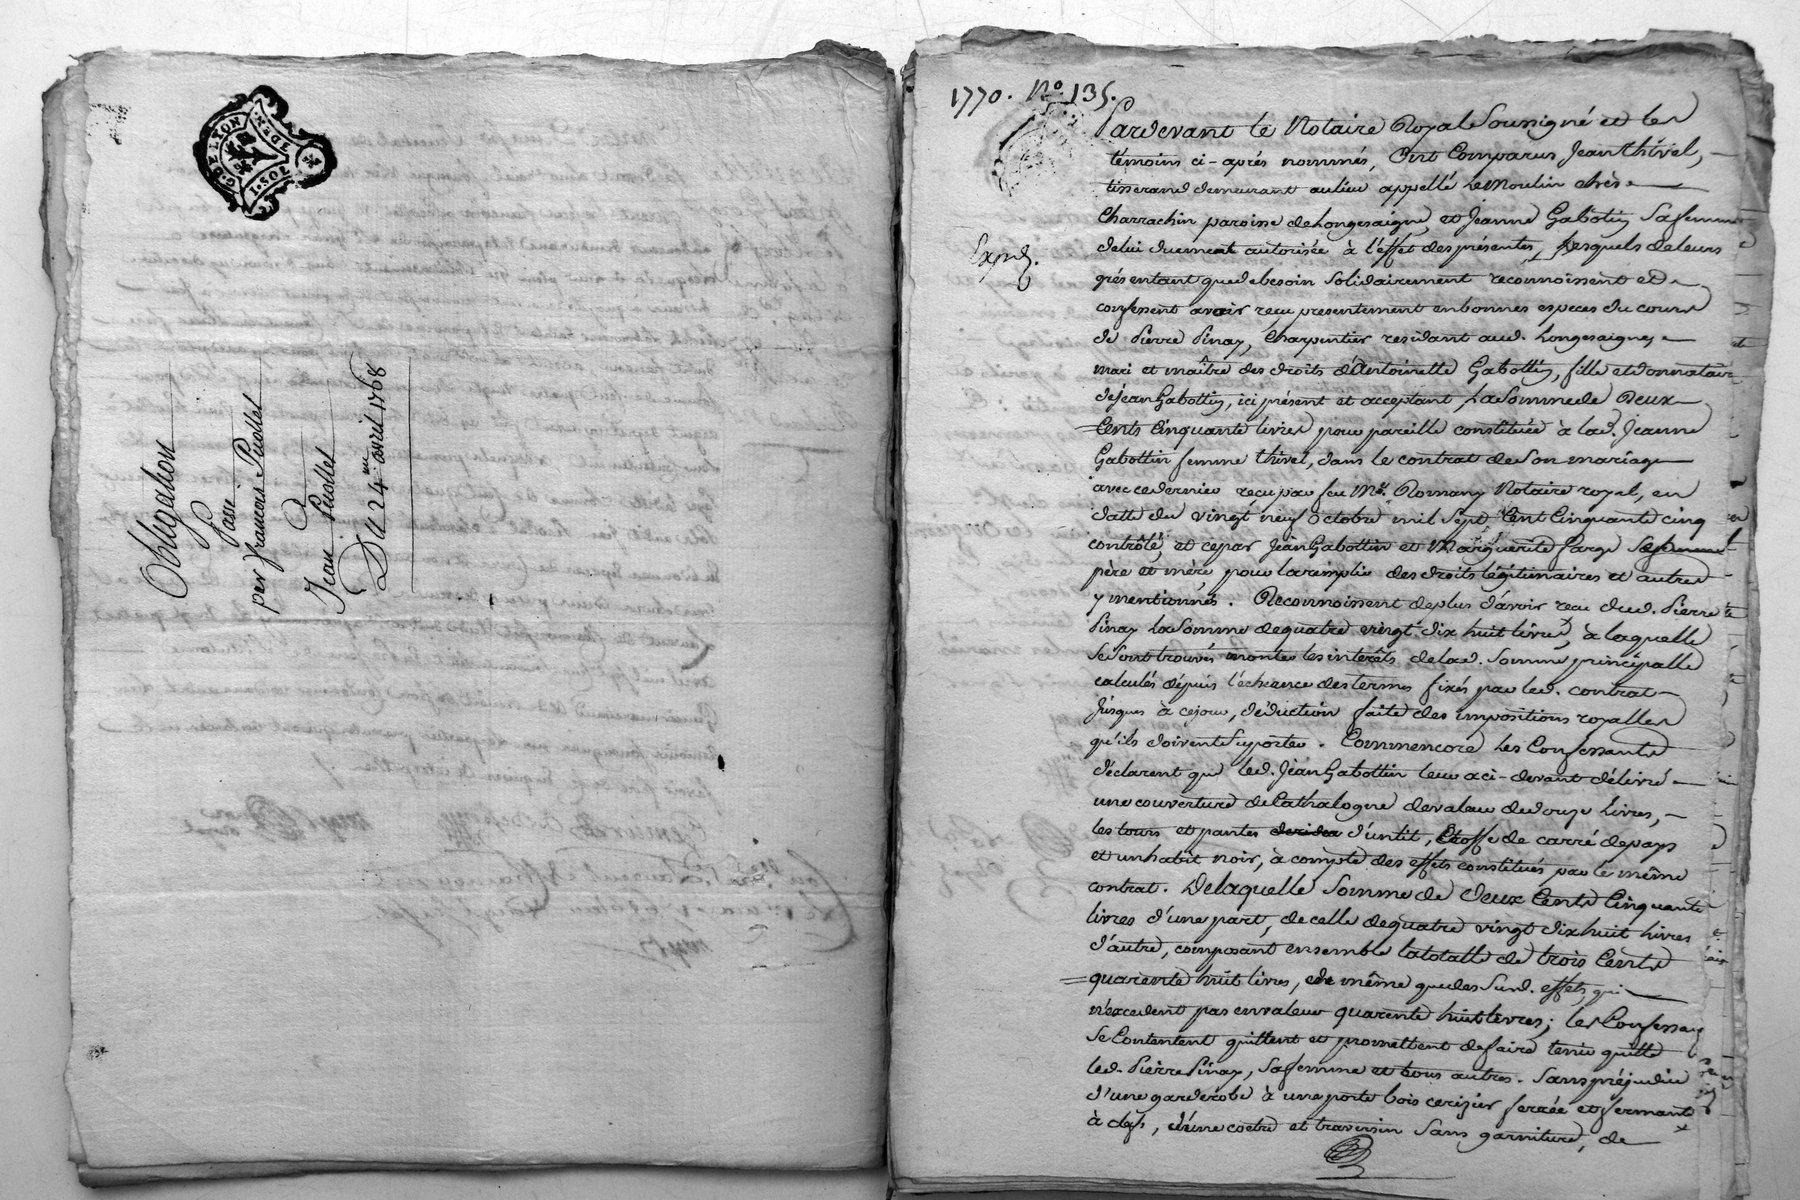 G. DE LYON
1. SOL
Obligation
Passé
par francois Piollet
A
Jean Piollet
Du 24me avril 1768
1770. No. 135.
Expéd.
Pardevant le Notaire Royal Soussigné et les
témoins ci-après nommés, Ont Comparus Jean thivel,
tisserand demeurant au lieu appellé le Moulin chés
Charrachin paroisse de Longesaigne, et Jeanne Gabotin Sa femme
de lui duement autorisée à l'effet des présentes, Lesquels de leurs
grés entant que de besoin solidairement reconnoissent et
confessent avoir recu presentement en bonnes especes du cours
de Pierre Pinay, Charpentier residant aud. Longesaigne
mari et maître des droits d'Antoinette Gabottin, fille et donnataire
de Jean Gabottin, ici présent et acceptant, La Somme de Deux
Cents Cinquante livres pour pareille constituée à lad. Jeanne
Gabottin femme thivel, dans le contrat de Son mariage
avec ce dernier recu par feu Me. Romany Notaire royal, en
datte du vingt neuf Octobre mil Sept Cent Cinquante cinq
contrôlé, et ce par Jean Gabottin et Marguerite farge Sa femme
père et mère, pour la remplir des droits légitimaires et autres
y mentionnés. Reconnoissent de plus d'avoir recu dud. Pierre
Pinay La Somme de quatre vingt dix huit livres, à laquelle
Se Sont trouvés monter les intérêts de lad. Somme principalle
calculés dépuis l'écheance des termes fixés par led. contrat
Jusques à ce jour, déduction faite des impositions royalles
qu'ils doivent Suporter. Comm'encore Les Confessants
déclarent que led. Jean Gabottin leur a ci-devant délivré
une couverture de Cathalogne de valeur de douze Livres,
les tours et pantes d'un lit, Etoffe de carré de pays
et un habit noir, à compte des effets constitués par le même
contrat. De laquelle Somme de Deux Cents Cinquante
livres d'une part, de celle de quatre vingt dix huit Livres
d'autre, composant ensemble la totalle de trois Cents
quarente huit livres, de même que des Susd. effets qui
n'excedent pas en valeur quarente huit livres; les Confessans
Se Contentent quittent et promettent de faire tenir quitte
led. Pierre Pinay, Sa femme et tous autres. Sans préjudice
d'une garderobe à une porte bois cerizier ferrée et fermante
à clefs, d'une coetre et traversin Sans garniture, de